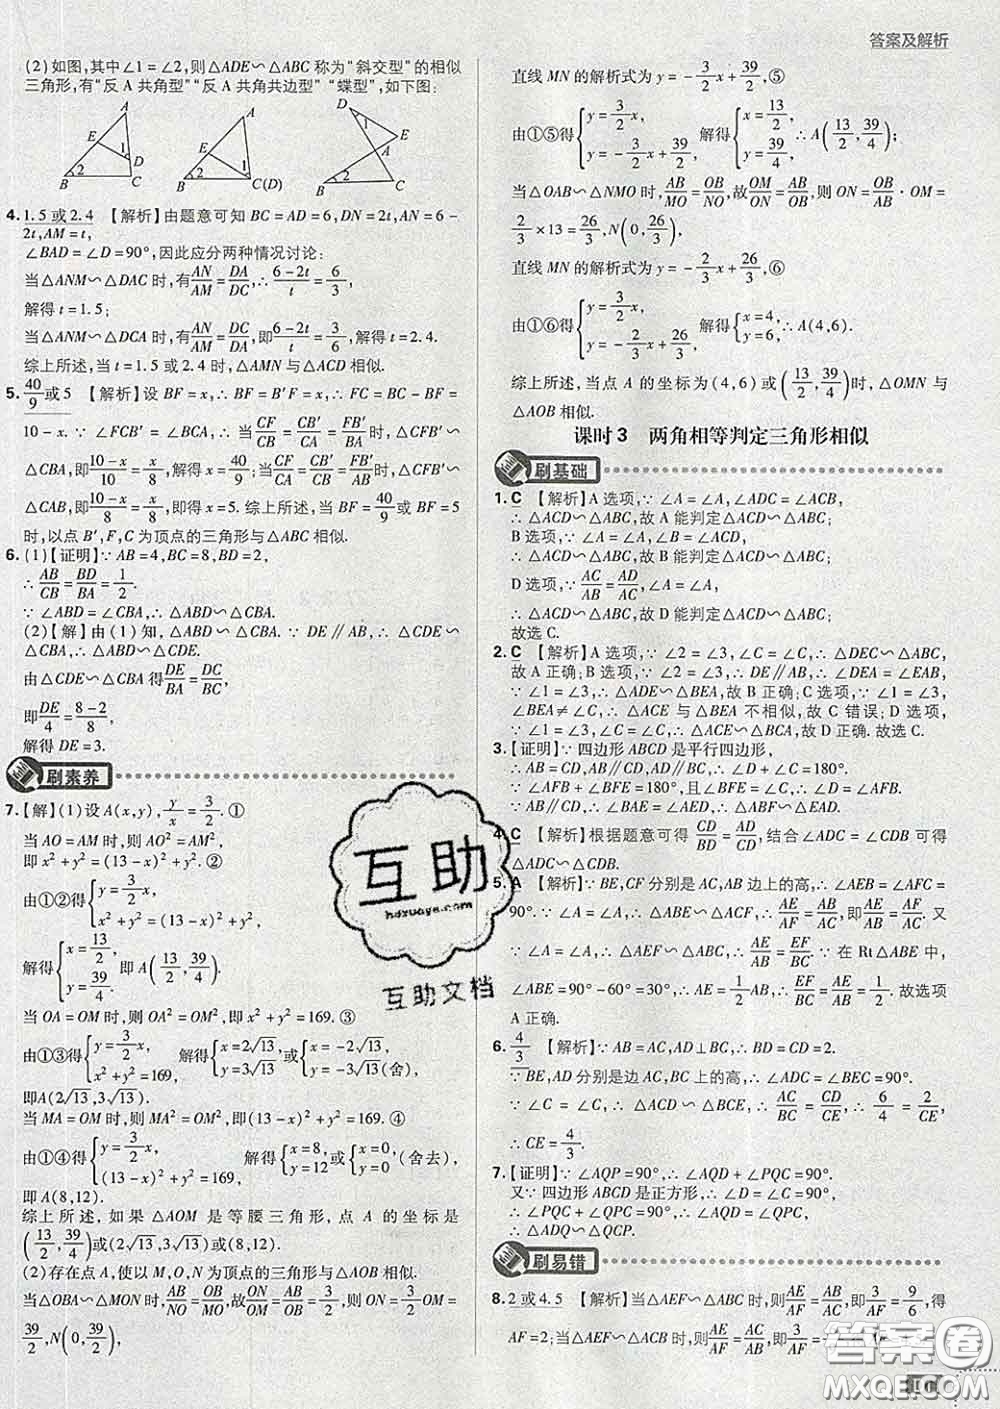 答案及解析
(2)如图,其中∠1=∠2,则△ADE∽△ABC称为“斜交型”的相似
三角形,有“反A共角型”“反A共角共边型”“蝶型”,如下图:
A
E
D
1
2
B
C
A
E
1
2
B
C(D)
D
1
E
A
2
B
C
4. 1.5或2.4 【解析】由题意可知BC=AD=6,DN=2t,AN=6-
2t,AM=t,
∠BAD=∠D=90°,因此应分两种情况讨论:
当△ANM∽△DAC时,有AN/AM=DA/DC,∴(6-2t)/t=6/3,
解得t=1.5;
当△ANM∽△DCA时,有AN/AM=DC/DA,即(6-2t)/t=3/6,解得t=2.4.
综上所述,当t=1.5或2.4时,△AMN与△ACD相似.
5. 40/9或5 【解析】设BF=x,∴BF=B′F=x,∴FC=BC-BF=
10-x.∵∠FCB′=∠BCA,∴当CF/CB=CB′/CA=FB′/BA时,△CFB′∽
△CBA,即(10-x)/8=x/6,解得x=40/9;当CF/CA=CB′/CB=FB′/BA时,△CFB′∽
△CAB,即(10-x)/8=x/8,即得x=5.综上所述,当BF=40/9或BF=5
时,以点B′,F,C为顶点的三角形与△ABC相似.
6. (1)【证明】∵AB=4,BC=8,BD=2,
∴AB/CB=BD/BA=1/2.
∵∠ABD=∠CBA,∴△ABD∽△CBA.
(2)【解】由(1)知,△ABD∽△CBA.∵DE∥AB,∴△CDE∽
△CBA,∴△ABD∽△CDE.
由△CDE∽△CBA得DE/BA=DC/BC,
即DE/4=(8-2)/8,
解得DE=3.
刷素养
7. 【解】(1)设A(x,y),y/x=3/2.①
当AO=AM时,则AO²=AM²,
即x²+y²=(13-x)²+y².②
由①②得{y=3/2x, x²+y²=(13-x)²+y²,
解得{x=13/2, y=39/4. 即A(13/2,39/4).
当OA=OM时,则OA²=OM²,即x²+y²=169.③
由①③得{y=3/2x, x²+y²=169, 解得{x=2√13, y=3√13或{x=-2√13, y=-3√13(舍),
即A(2√13,3√13).
当MA=OM时,则MA²=OM²,即(13-x)²+y²=169.④
由①④得{y=3/2x, (13-x)²+y²=169, 解得{x=8, y=12或{x=0, y=0(舍去),
即A(8,12).
综上所述,如果△AOM是等腰三角形,点A的坐标是
(13/2,39/4)或(2√13,3√13)或(8,12).
(2)存在点A,使以M,O,N为顶点的三角形与△AOB相似.
当△OBA∽△MON时,AB/NO=OB/MO,故ON/OM=AB/OB=3/2,则ON=3/2OM=
39/2,N(0,39/2),
直线MN的解析式为y=-3/2x+39/2,⑤
由①⑤得{y=3/2x, y=-3/2x+39/2, 解得{x=13/2, y=39/4,∴A(13/2,39/4);
当△OAB∽△NMO时,AB/MO=OB/NO,故OM/ON=AB/OB,则ON=OB/AB·OM=
2/3×13=26/3,N(0,26/3),
直线MN的解析式为y=-2/3x+26/3,⑥
由①⑥得{y=3/2x, y=-2/3x+26/3, 解得{x=4, y=6,∴A(4,6).
综上所述,当点A的坐标为(4,6)或(13/2,39/4)时,△OMN与
△AOB相似.
课时3 两角相等判定三角形相似
刷基础
1. C 【解析】A选项,∵∠A=∠A,∠ADC=∠ACB,
∴△ACD∽△ABC,故A能判定△ACD∽△ABC;
B选项,∵∠A=∠A,∠ACD=∠B,
∴△ACD∽△ABC,故B能判定△ACD∽△ABC;
D选项,∵AC/AB=AD/AC,∠A=∠A,
∴△ACD∽△ABC,故D能判定△ACD∽△ABC;
故选C.
2. C 【解析】A选项,∵∠2=∠3,∠C=∠C,∴△DEC∽△ABC,
故A正确;B选项,∵∠2=∠3,∴DE∥AB,∴∠DEA=∠EAB,
∵∠1=∠3,∴△ADE∽△BEA,故B正确;C选项,∵∠1=∠3,
∠BEA≠∠C,∴△ACE与△BEA不相似,故C错误;D选项,
∵∠1=∠2,∠C=∠C,∴△ACE∽△BCA,故D正确.故选C.
3. 【证明】∵四边形ABCD是平行四边形,
∴AB=CD,AB∥CD,AD∥BC,∴∠D+∠C=180°.
∵∠AFB+∠BFE=180°,且∠BFE=∠C,∴∠AFB=∠D.
∵AB∥CD,∴∠BAE=∠AED,∴△ABF∽△EAD.
4. C 【解析】根据题意可得CD/BD=AD/CD,结合∠ADC=∠CDB可得
△ADC∽△CDB.
5. A 【解析】∵BE,CF分别是AC,AB边上的高,∴∠AEB=∠AFC=
90°.∵∠A=∠A,∴△ABE∽△ACF,∴AE/AF=AB/AC,即AE/AB=AF/AC.又
∵∠A=∠A,∴△AEF∽△ABC,∴AE/AB=EF/BC.∵在Rt△ABE中,
∠ABE=90°-60°=30°,∴AE=1/2AB,∴AE/AB=1/2.故选项
A正确.
6. 4/3 【解析】∵AB=AC,AD⊥BC,∴BD=CD=2.
∵BE,AD分别是边AC,BC上的高,∴∠ADC=∠BEC=90°.
∵∠C=∠C,∴△ACD∽△BCE,∴AC/BC=CD/CE,∴6/4=2/CE,
∴CE=4/3.
7. 【证明】∵∠AQP=90°,∴∠AQD+∠PQC=90°.
又∵四边形ABCD是正方形,∴∠D=∠C=90°,
∴∠PQC+∠QPC=90°,∴∠AQD=∠QPC,
∴△ADQ∽△QCP.
刷易错
8. 2或4.5 【解析】当△AEF∽△ABC时,则AE/AB=AF/AC,即3/AF=9/6,得
AF=2;当△AEF∽△ACB时,则AE/AC=AF/AB,即3/
互助
hdzuoye.com
互助文档
答案圈
MXQE.COM